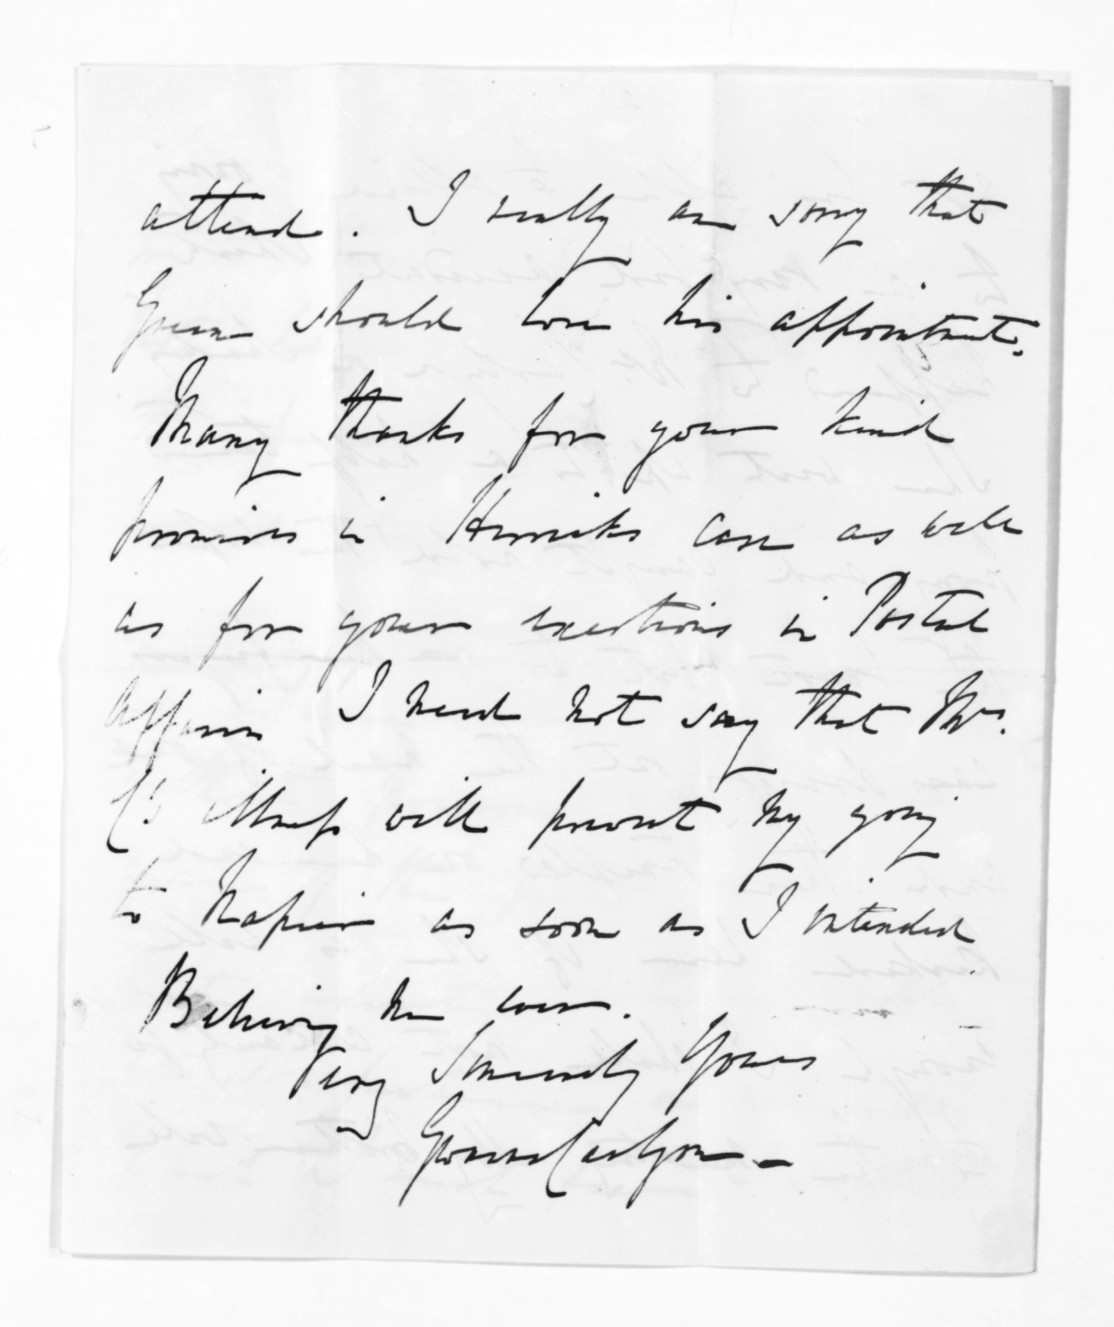 attend. I really am sorry that
Green should lose his appointment.
Many thanks for your kind
promises in Herricks case as well
as for your exertions in Postal
affairs I need not say that Mrs.
C's illness will prevent my going
to Napier as soon as I intended
Believing me ever.
Very Sincerely Yours